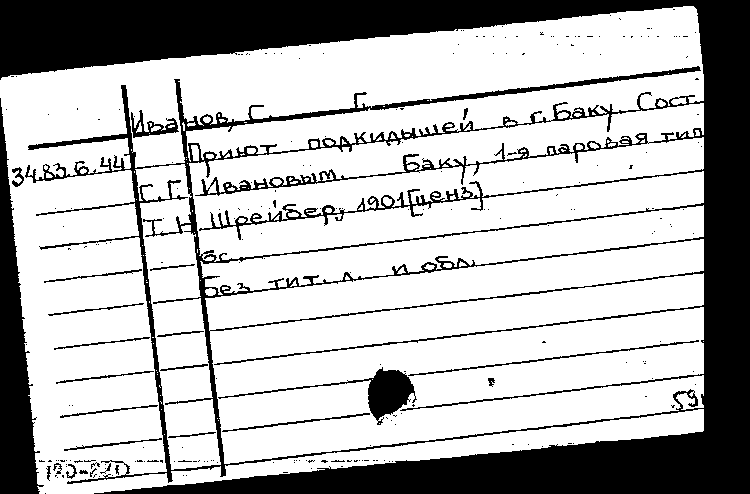 Иванов, Г. Г.
34.83.6.44 Приют подкидышей в г. Баку. Сост.
Г. Г. Ивановым. Баку, 1-я паровая тип
Т. Н Шрейбер, 1901 [ценз.].
6с.
Без тит. л. и обл.
59